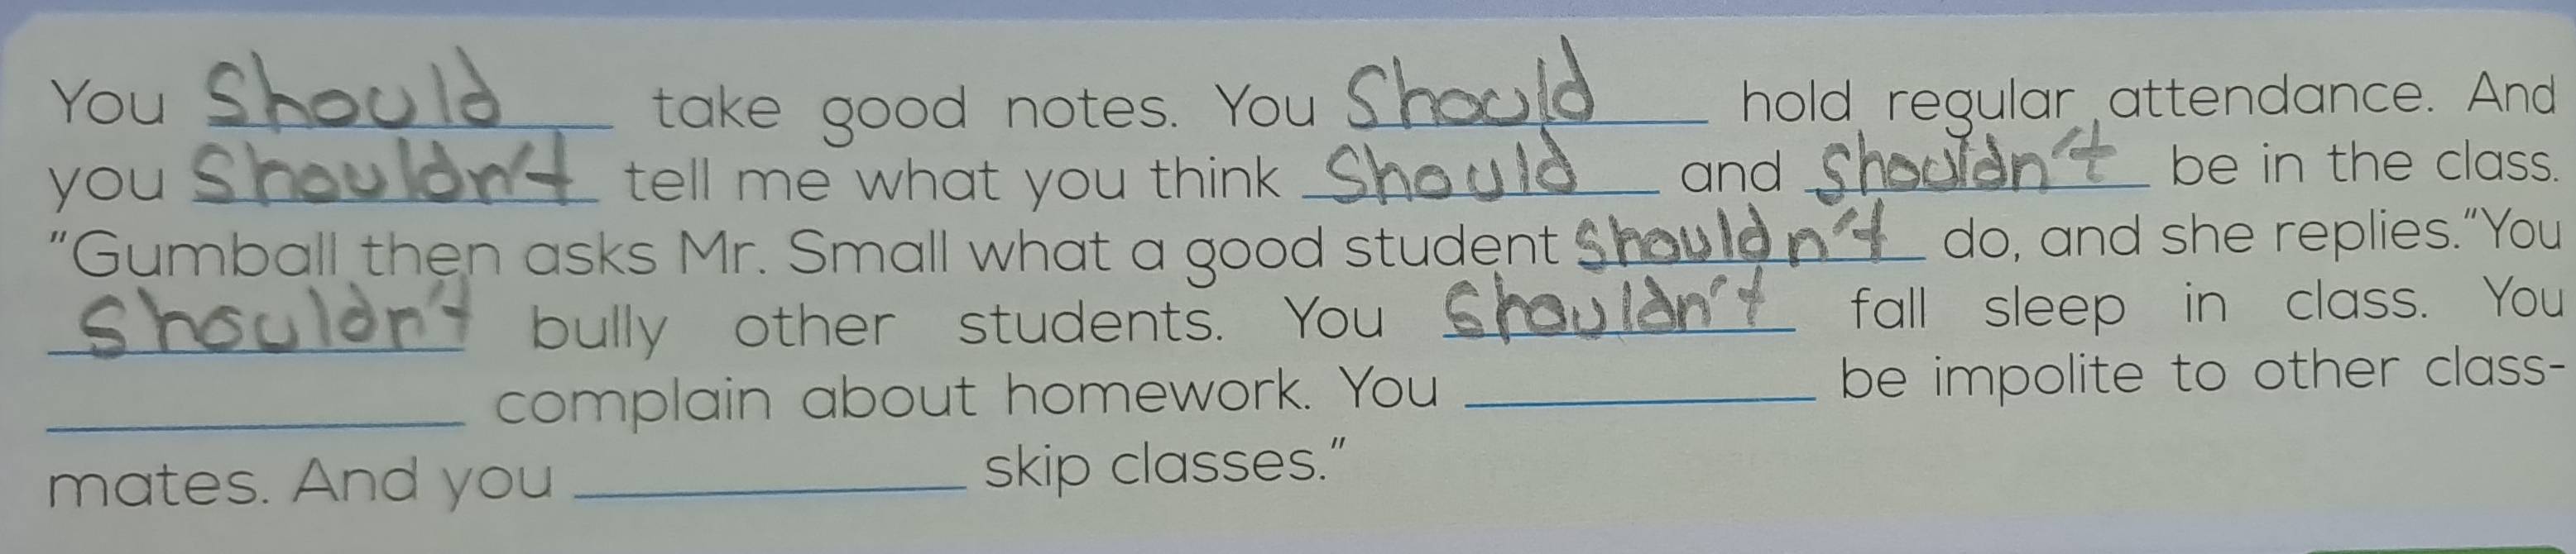 You Should take good notes. You Should hold regular attendance. And
you Shouldn't tell me what you think Should and shouldn't be in the class.
"Gumball then asks Mr. Small what a good student shouldn't do, and she replies."You
Shouldn't bully other students. You Shouldn't fall sleep in class. You
__________ complain about homework. You __________ be impolite to other class-
mates. And you __________ skip classes."